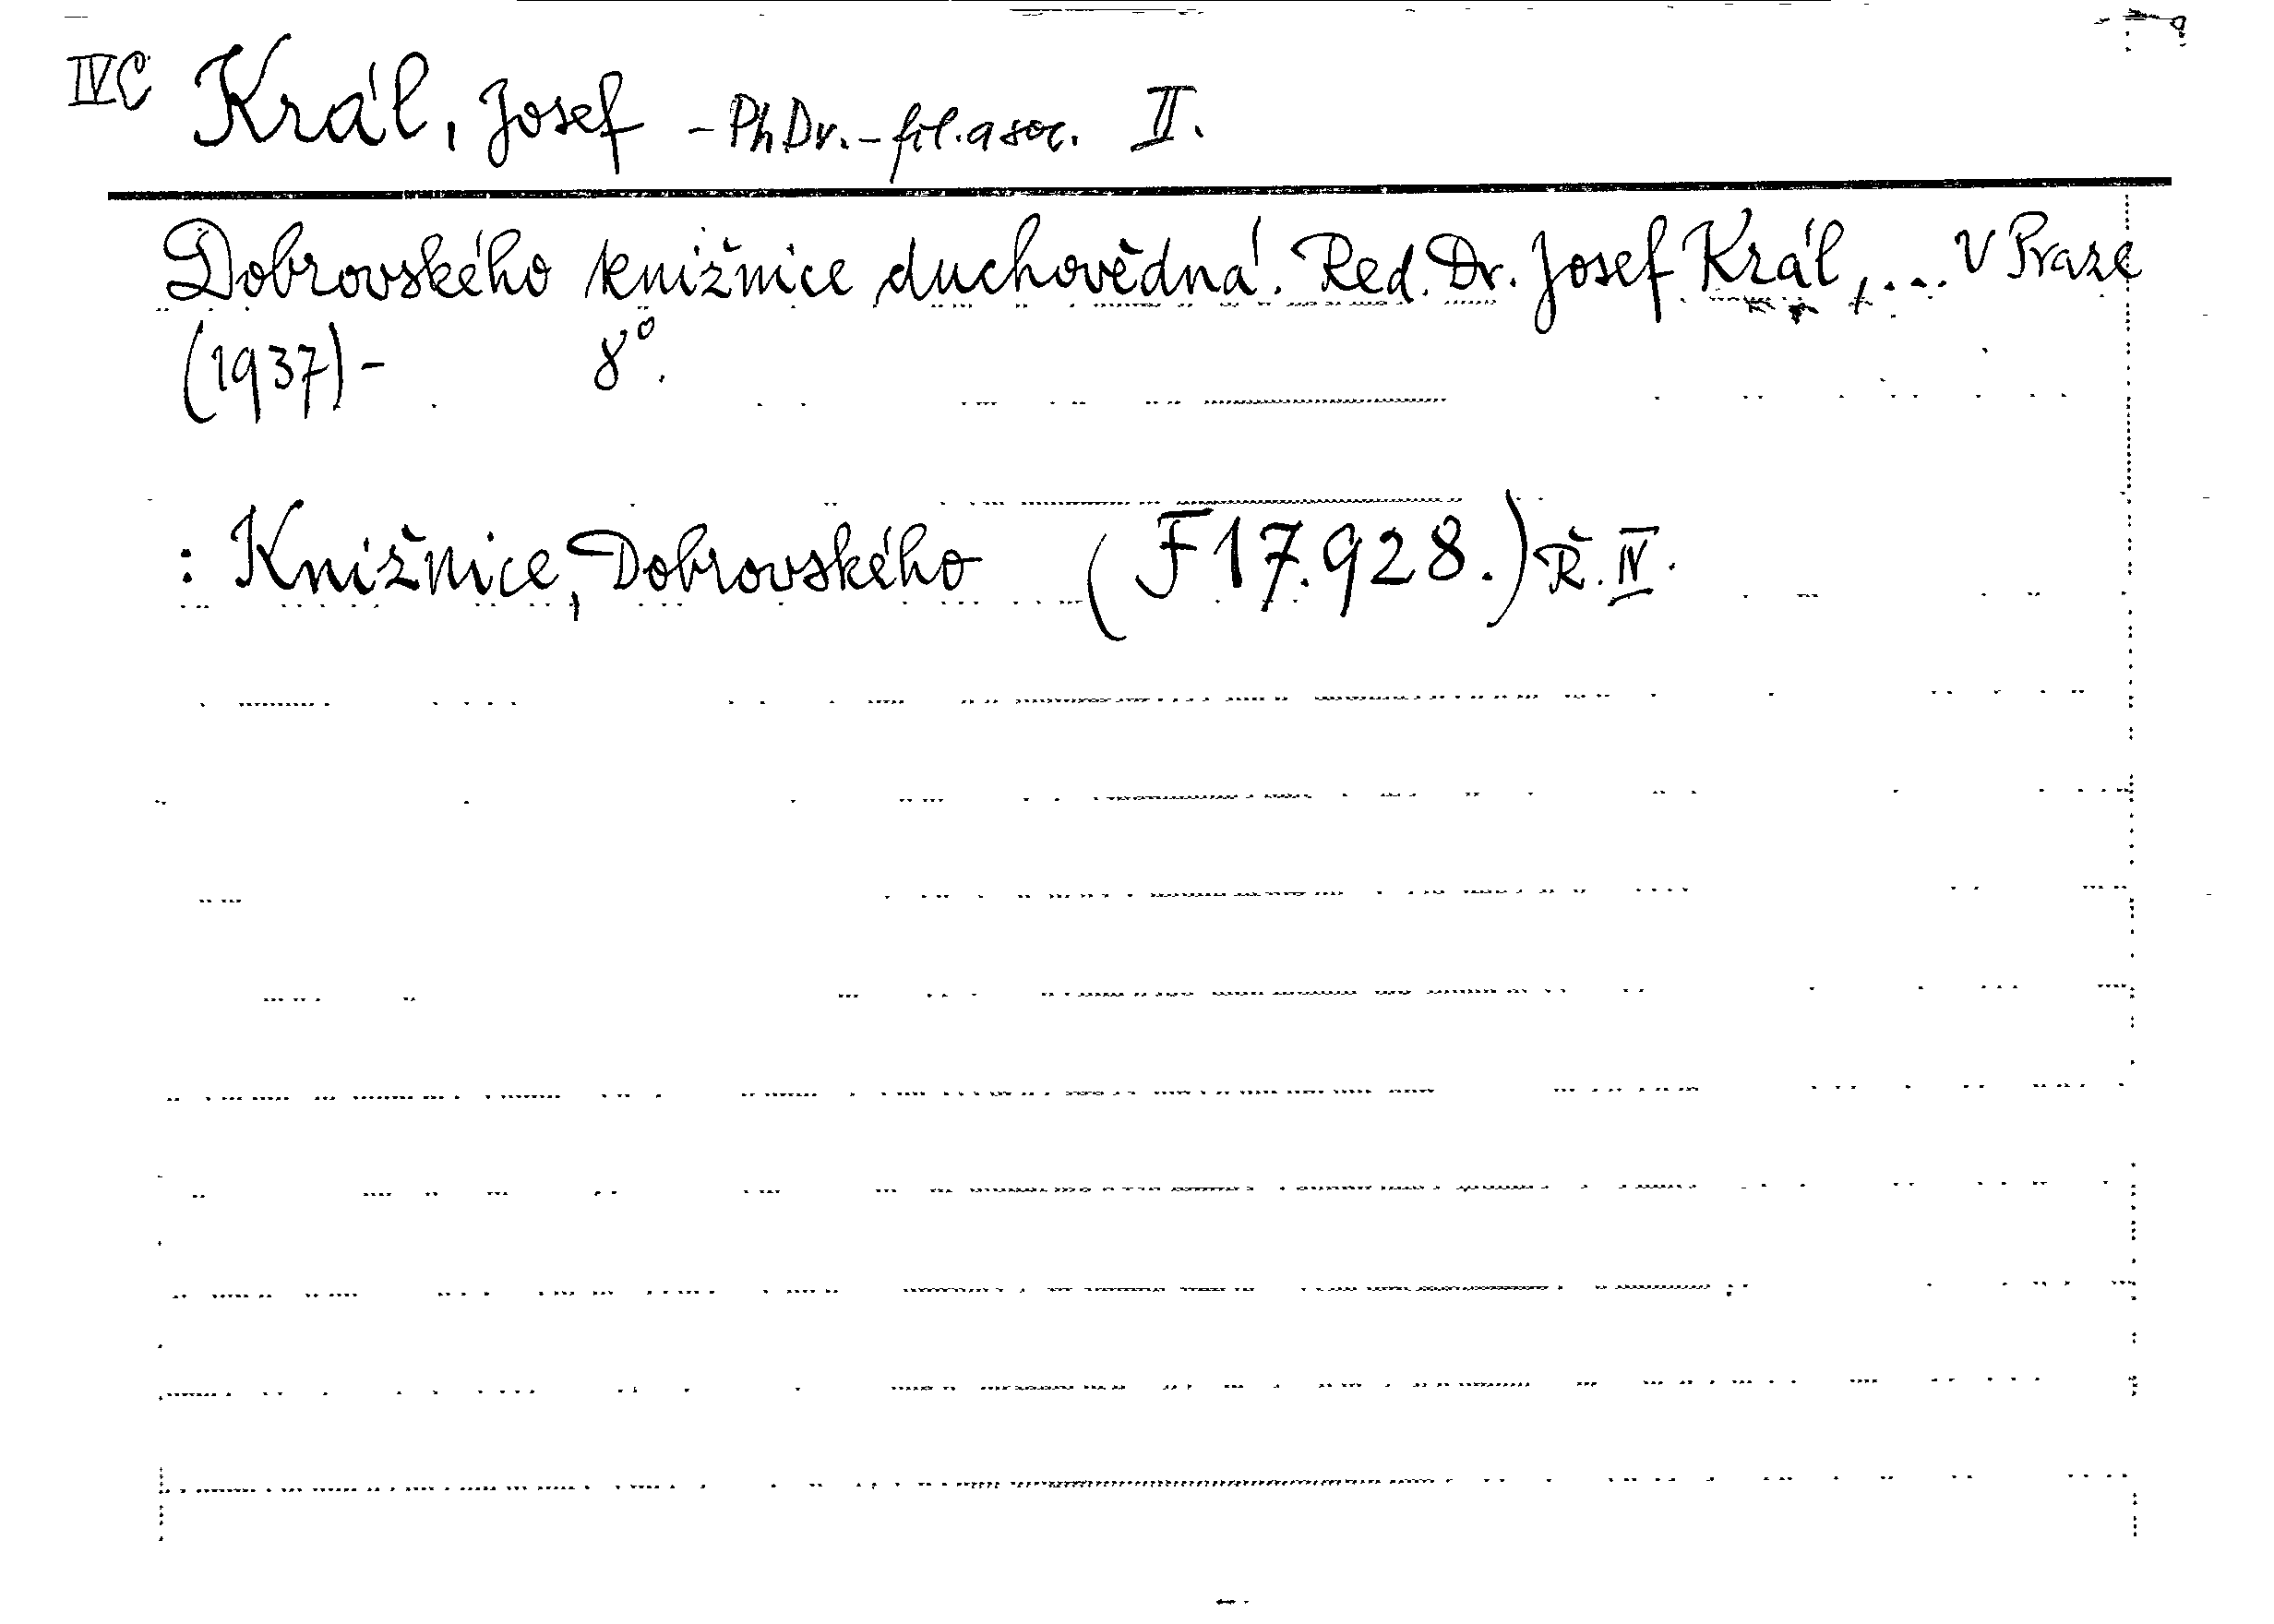 IVC Král, Josef - PhDr. - fil. a soc. II.
Dobrovského knižnice duchovědná. Red. Dr. Josef Král, ... V Praze
(1937) - 8°.
: Knižnice, Dobrovského (F 17.928.) Ř. IV.